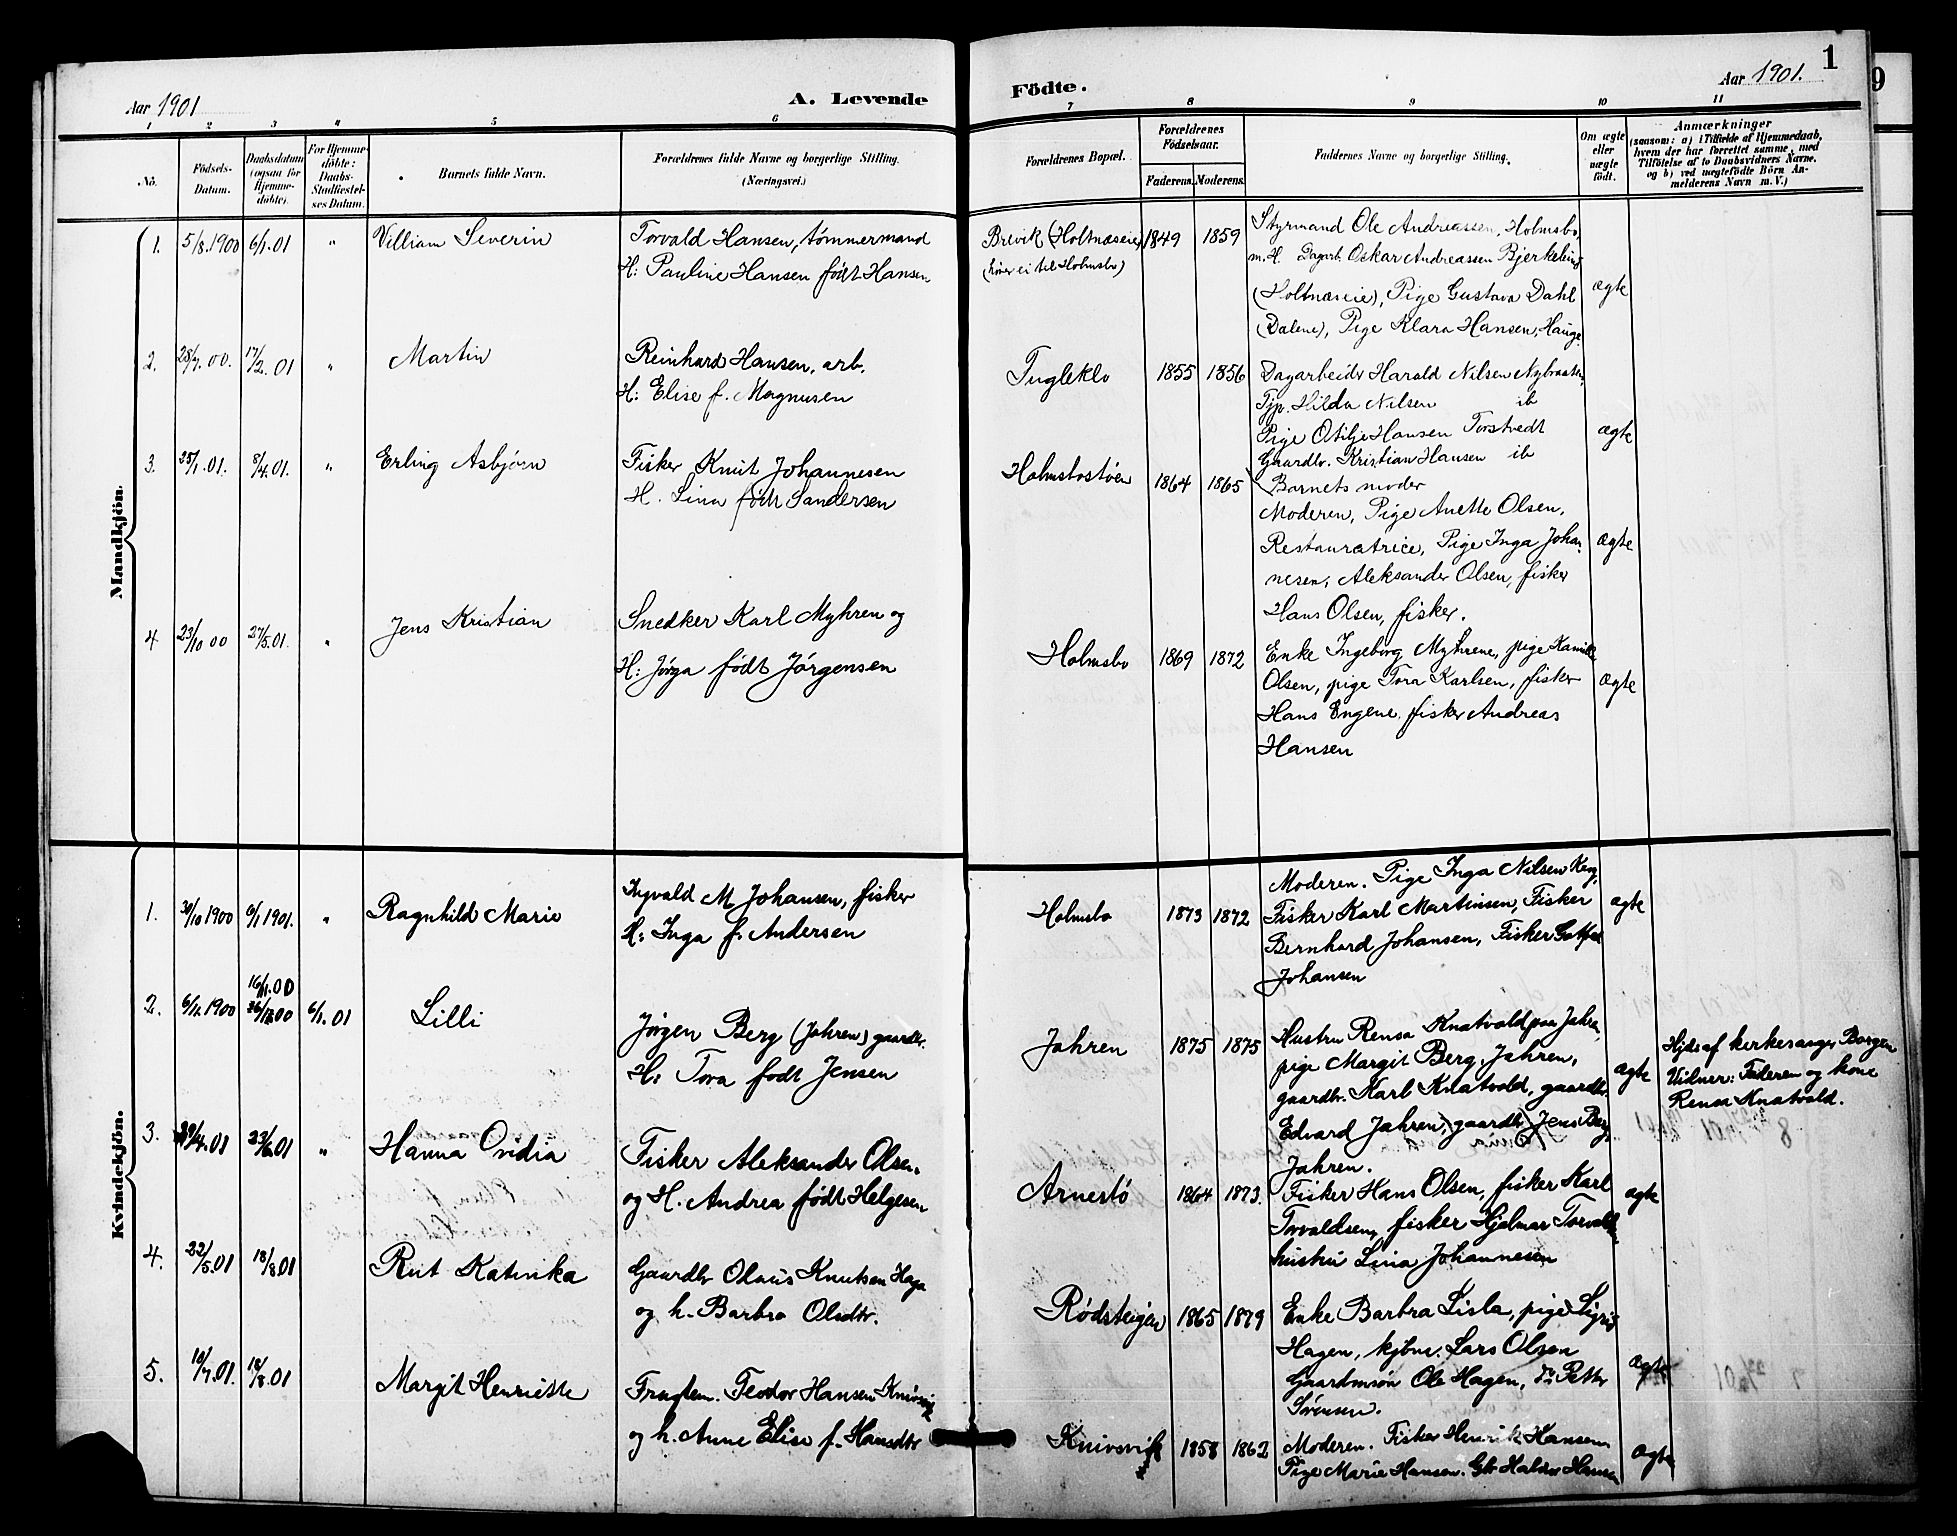 Aar 1901
A. Levende
Födte.
Aar 1901.
1
9
1 2 3 4 5 6 7 8 9 10 11
No.
Födsels-
Datum.
Daabsdatum
(ogsaa for
Hjemme-
döbte).
For Hjemme-
döbte:
Daabs-
Stadfæstel-
ses Datum.
Barnets fulde Navn.
Forældrenes fulde Navne og borgerlige Stilling.
(Næringsvei.)
Forældrenes Bopæl.
Forældrenes
Födselsaar.
Faderens. Moderens.
Faddernes Navne og borgerlige Stilling.
Om ægte
eller
uægte
födt.
Anmærkninger
(saasom: a) i Tilfælde af Hjemmedaab,
hvem der har forrettet samme, med
Tilföielse af to Daabsvidners Navne.
og b) ved uægtefödte Börn An-
melderens Navn m. V.)
Mandkjön.
1. 5/8.1900 6/1.01 " Villiam Severin
Torvald Hansen, tømmermand
H: Pauline Hansen født Hansen
Brevik (Holtnæseie) 1849 1859
(hører ei til Holmsbo)
Styrmand Ole Andreassen, Holmsbo,
m. H. Dagarb. Oskar Andreassen
(Holtnæseie), Pige Gustava Dahl
(Dalene), Pige Klara Hansen, Hauge
ægte
2. 28/7.00. 17/2.01 " Martin
Reinhard Hansen, arb.
H: Elise f. Magnusen
Tugleklo 1855 1856
Dagarbeider Harald Nilsen Nybraaten,
Tjp. Hilda Nilsen ib
Pige Otilje Hansen Torstvedt
Gaardbr. Kristian Hansen ib
Barnets moder
ægte
3. 25/1.01. 8/4.01. " Erling Asbjørn
Fisker Knut Johannesen
H. Lina født Sandersen
Holmsbostøen 1864 1865
Moderen, Pige Anette Olsen,
Restauratrice, Pige Inga Johan-
nesen, Aleksander Olsen, fisker
Hans Olsen, fisker.
ægte
4 23/10 00 27/5.01. " Jens Kristian
Snedker Karl Myhren og
H: Jørga født Jörgensen
Holmsbo 1869 1872
Enke Ingeborg Myhrene, pige
Olsen, pige Tora Karlsen, fisker
Hans Engene, fisker Andreas
Hansen
ægte
Kvindekjön.
1. 30/10 1900 6/1 1901. " Ragnhild Marie
Ingvald M Johansen, fisker
H: Inga f. Andersen
Holmsbo 1873 1872
Moderen. Pige Inga Nilsen
Fisker Karl Martinsen, Fisker
Bernhard Johansen, Fisker
Johansen
ægte
2. 6/11.1900 16/11.00
26/12.00 6/1.01 Lilli
Jørgen Berg (Jahren) gaardbr.
H: Tora født Jensen
Jahren 1875 1875
Hustru Rensa Knatvold paa Jahre,
pige Margit Berg, Jahren,
gaardbr. Karl Knatvold, gaardbr.
Edvard Jahren, gaardbr. Jens Berg
Jahren.
ægte
Hjd. af kirkesanger Borgen
Vidner: Faderen og kone
Rensa Knatvold.
3. 29/4.01 23/6.01 " Hanna Ovidia
Fisker Aleksander Olsen.
og H. Andrea født Helgesen
Arnestö 1864 1873.
Fisker Hans Olsen, fisker Karl
Torvaldsen, fisker Hjalmar
hustru Lina Johannesen
ægte
4. 22/5.01 18/8.01 Rut Katinka
Gaardbr Olaus Knutsen Haga
og h. Barbra Olsdtr.
Rødsteigen 1865 1879
Enke Barbra Lisla, pige Sigrid
Hagen, kjbm. Lars Olsen
Gaardmsøn Ole Hagen, Petter
Sörensen.
ægte
5. 10/7.01. 18/8.01 Margit Henriette
Fragtem. Teodor Hansen Knivsvik
og h. Anne Elise f. Hansdtr
Knivsvik 1858 1862
Moderen. Fisker Henrik Hansen
Pige Marie Hansen. Gbr Halvor Hansen
ægte